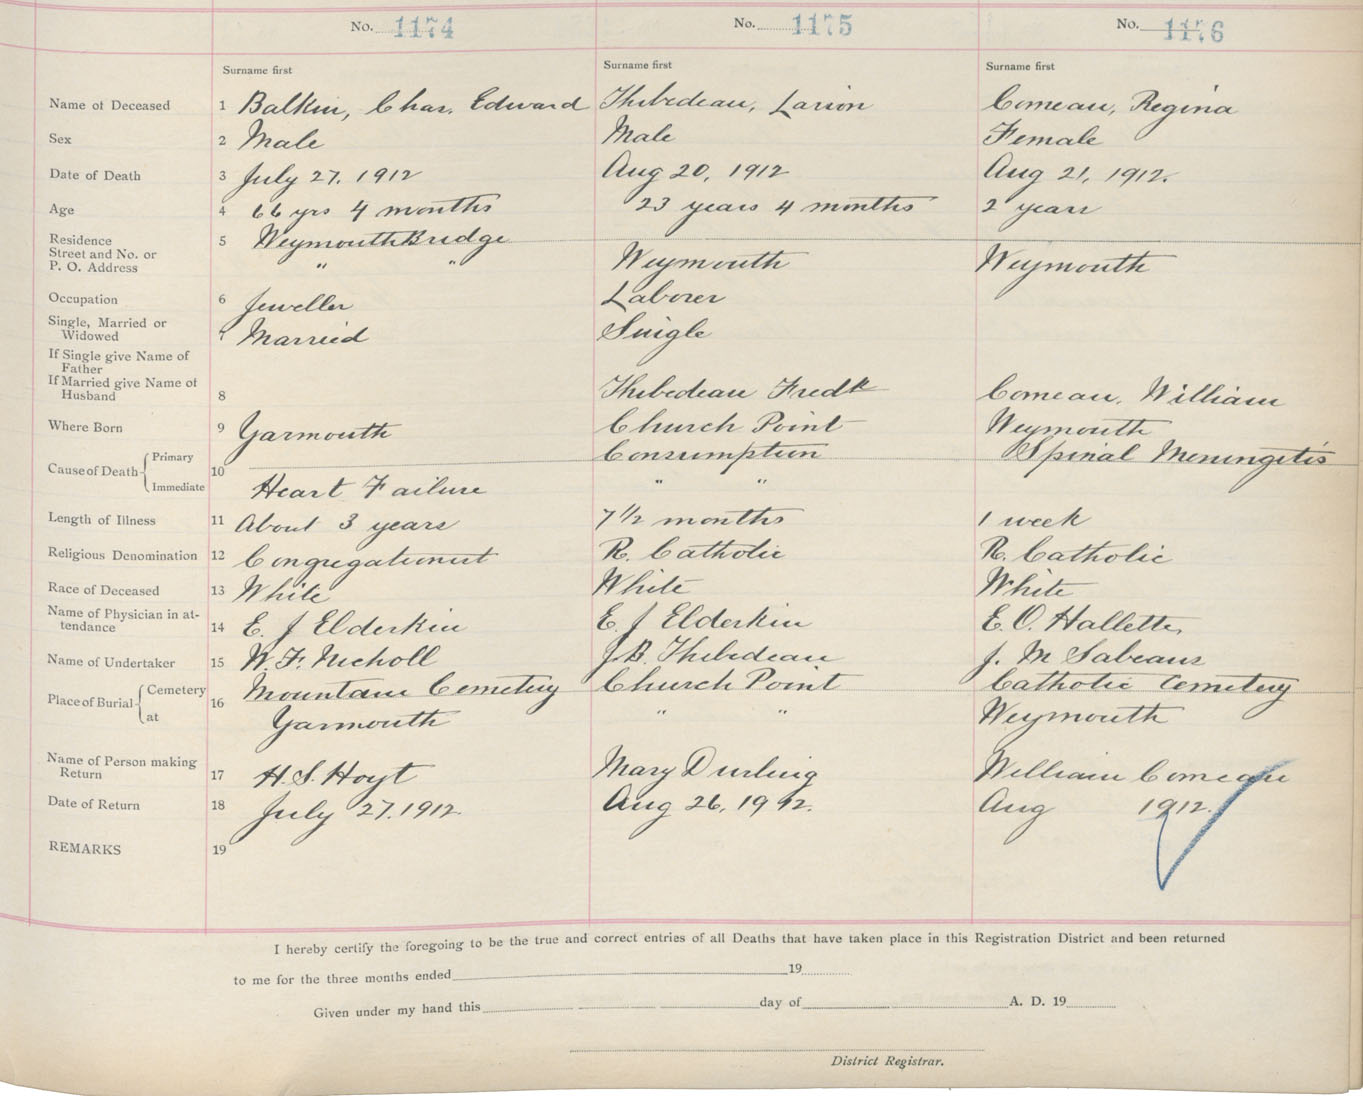 No. 1174 No. 1175 No. 1176
Surname first Surname first Surname first
Name of Deceased 1 Balkin, Chas. Edward Thibedeau, Larion Comeau, Regina
Sex 2 Male Male Female
Date of Death 3 July 27, 1912 Aug 20, 1912 Aug 21, 1912.
Age 4 66 yrs 4 months 23 years 4 months 2 years
Residence 5 Weymouth Bridge
Street and No. or Weymouth Weymouth
P. O. Address " "
Occupation 6 Jeweller Laborer
Single, Married or
Widowed 7 Married Single
If Single give Name of
Father
If Married give Name of Thibedeau Fredk Comeau, William
Husband 8
Where Born 9 Yarmouth Church Point Weymouth
Primary Consumption Spinal Meningitis
Cause of Death 10
Immediate Heart Failure " "
Length of Illness 11 About 3 years 7 1/2 months 1 week
Religious Denomination 12 Congregationist R. Catholic R. Catholic
Race of Deceased 13 White White White
Name of Physician in at-
tendance 14 E. J Elderkin E. J Elderkin E. O. Hallett
Name of Undertaker 15 W. F. Nicholl J. B. Thibedeau J. M Sabeans
Cemetery Mountain Cemetery Church Point Catholic Cemetery
Place of Burial 16
at Yarmouth " " Weymouth
Name of Person making
Return 17 H. S. Hoyt Mary Durling William Comeau
Date of Return 18 July 27. 1912. Aug 26, 1912. Aug 1912.
REMARKS 19
I hereby certify the foregoing to be the true and correct entries of all Deaths that have taken place in this Registration District and been returned
to me for the three months ended 19
Given under my hand this day of A. D. 19
District Registrar.